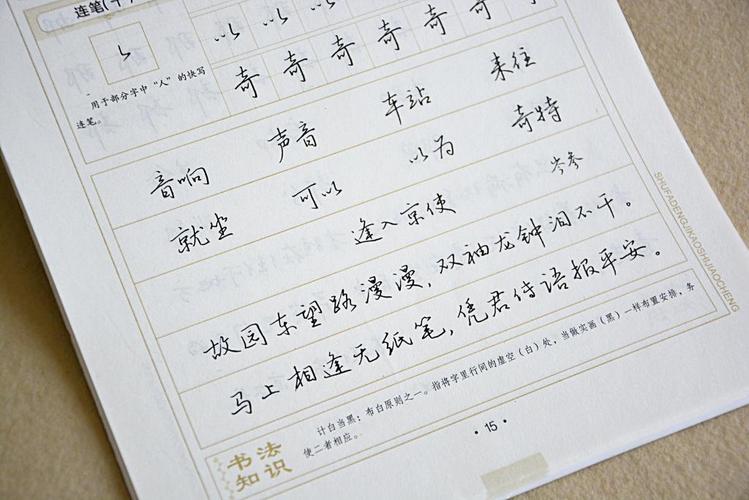 连笔(十)
以 以 以 以 以
用于部分字中“人”的快写连笔。
奇 奇 奇 奇 奇 奇 奇
音响 声音 车站 来往
就坐 可以 以为 奇特
逢入京使 岑参
故园东望路漫漫，双袖龙钟泪不干。
马上相逢无纸笔，凭君传语报平安。
书法知识
计白当黑：布白原则之一。指将字里行间的虚空（白）处，当做实画（黑）一样布置安排，务
使二者相应。
·15·
SHUFADENGJIKAOSHIJIAOCHENG